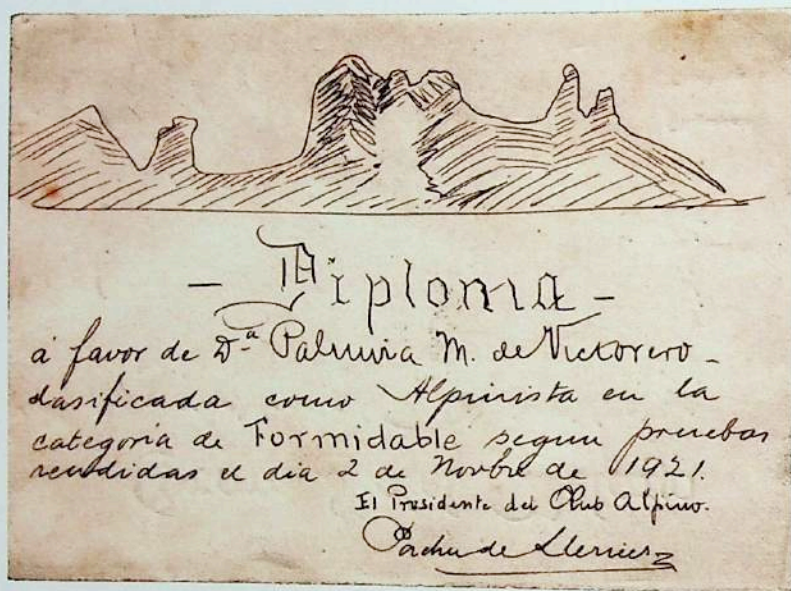 - Diploma -
á favor de D.ª Palmira M. de Victorero -
clasificada como Alpinista en la
categoría de Formidable segun pruebas
rendidas el dia 2 de Novbre de 1921.
El Presidente del Club Alpino.
Pachu de